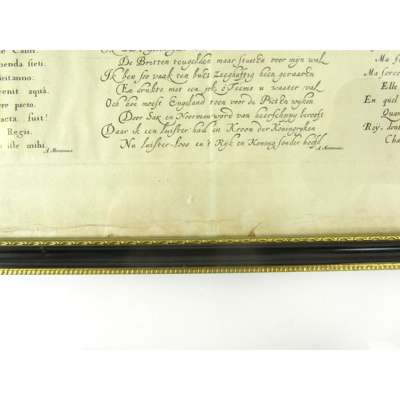 e Calif
menda fieti.
citanno.
venit aquâ.
ere picto.
acta fuit!
Regis.
n ille mihi.
A. Montanus.
De Britten teugelden maar stutten voor mijn wal
Ik ben soo vaak ten buks Zeeghaftig heen gevaaren
En drukte met een jok, o Teems u waater val
Och hoe moest Engeland toen voor de Picten wyken
Door Sax en Noorman werd van heerschappy berooft
Daar ik een luister had in Kroon der Koningryken
Nu luister-loos en 't Ryk en Koning sonder hoofd
A. Montanus.
As
Ma force
Ma force
Elle
En quel
Quan
Roy, dont
Cha